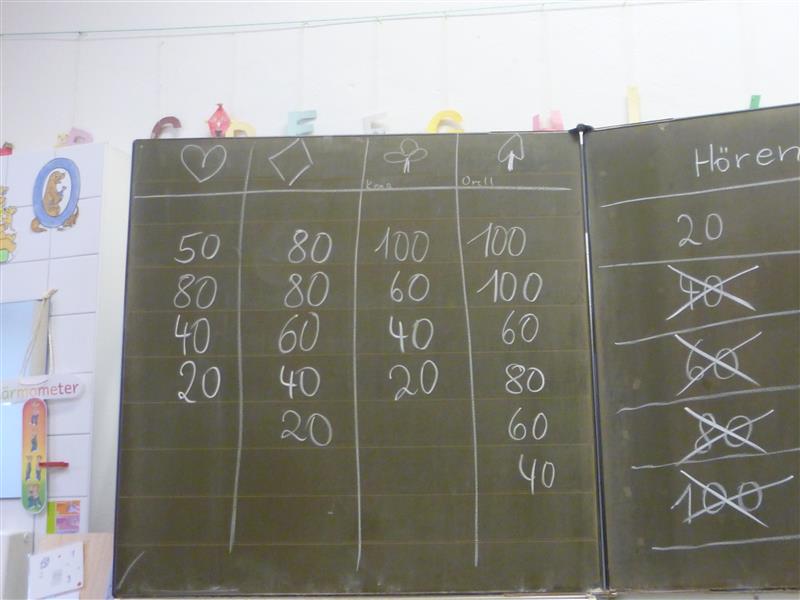 C D E F G H I
ärmometer
Orell
50 80 100 100
80 80 60 100
40 60 40 60
20 40 20 80
20 60
40
Hören
20
40
60
80
100